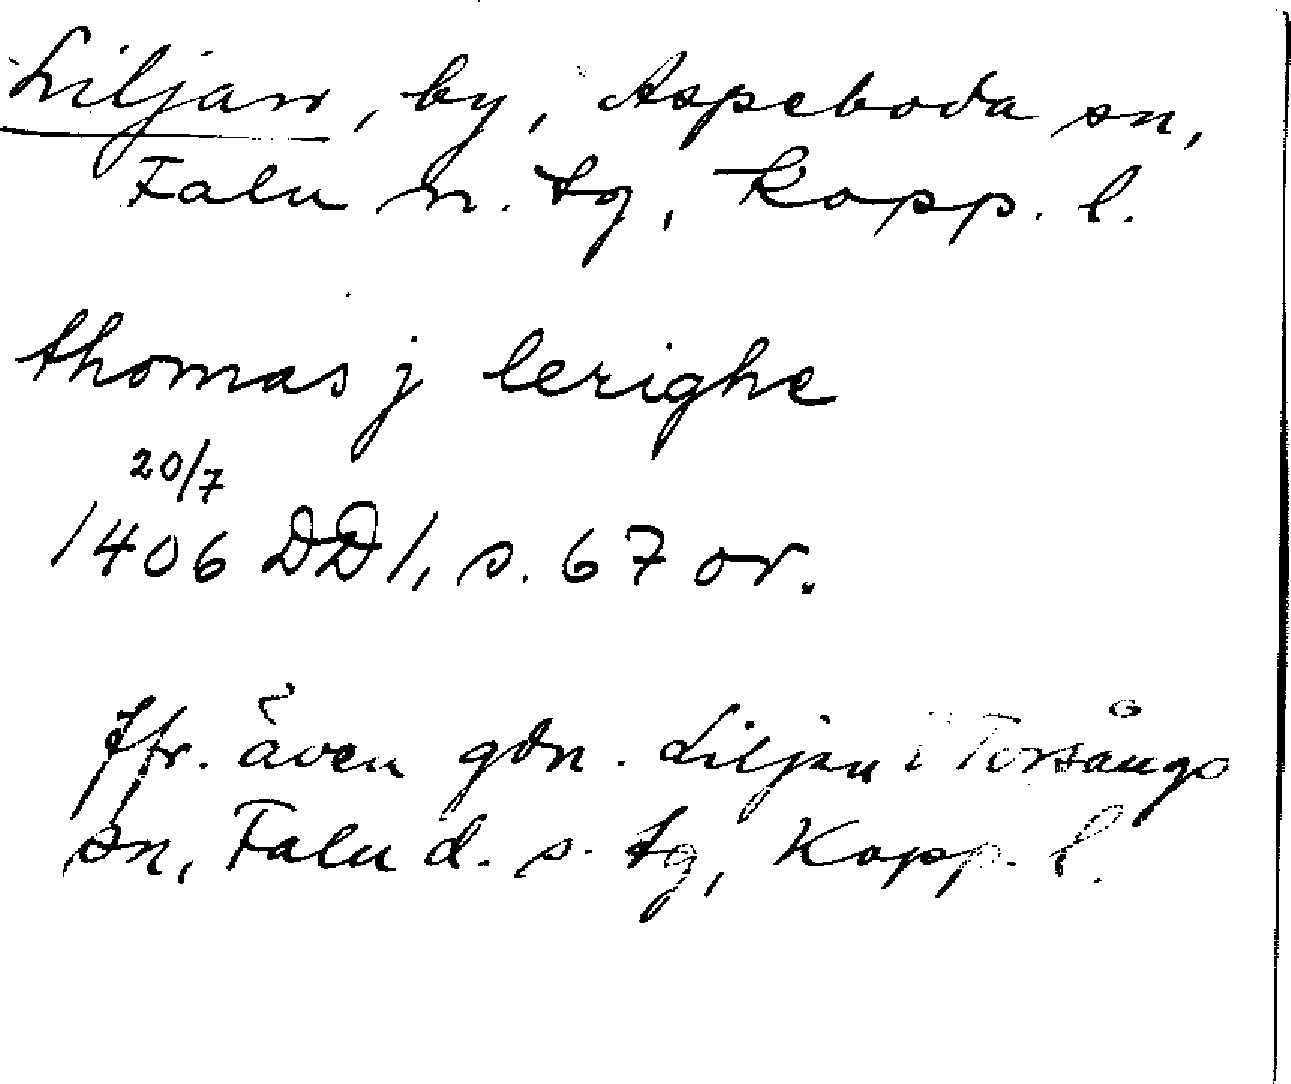 Liljan, by, Aspeboda sn,
Falu n. tg, Kopp. l.
thomas j lerighe
20/7
1406 DD 1, s. 67 or.
Jfr. även gdn. Liljan i Torsångs
sn, Falu d. s. tg, Kopp. l.